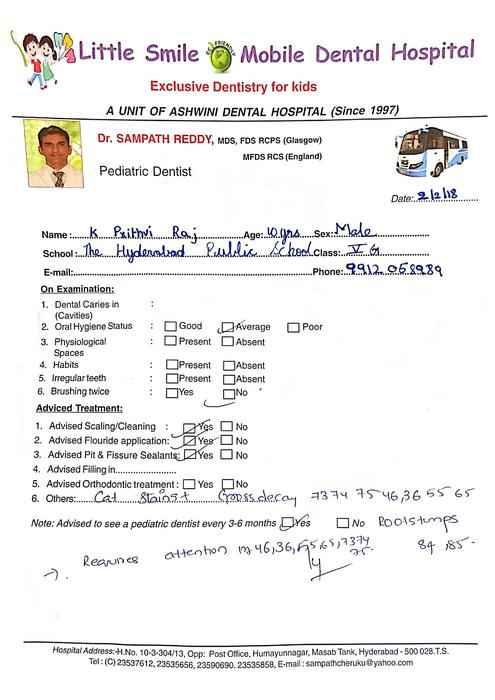 Little Smile ECO FRIENDLY Mobile Dental Hospital
Exclusive Dentistry for kids
A UNIT OF ASHWINI DENTAL HOSPITAL (Since 1997)
Dr. SAMPATH REDDY, MDS, FDS RCPS (Glasgow)
MFDS RCS (England)
Pediatric Dentist
Date: 2/2/18
Name: K Prithvi Raj Age: 10yrs Sex: Male
School: The Hyderabad Public School Class: V G
E-mail: Phone: 9912 058989
On Examination:
1. Dental Caries in :
(Cavities)
2. Oral Hygiene Status : Good Average Poor
3. Physiological : Present Absent
Spaces
4. Habits : Present Absent
5. Irregular teeth : Present Absent
6. Brushing twice : Yes No
Adviced Treatment:
1. Advised Scaling/Cleaning : Yes No
2. Advised Flouride application: Yes No
3. Advised Pit & Fissure Sealants: Yes No
4. Advised Filling in
5. Advised Orthodontic treatment : Yes No
6. Others: Cat Stains+ Gross decay 7374 75 46,36 55 65
Note: Advised to see a pediatric dentist every 3-6 months Yes No Rootstumps
84,85.
Requires attention 46,36, 65, 7374
75.
Hospital Address:-H.No. 10-3-304/13, Opp: Post Office, Humayunnagar, Masab Tank, Hyderabad - 500 028.T.S.
Tel : (C) 23537612, 23535656, 23590690. 23535858, E-mail : sampathcheruku@yahoo.com